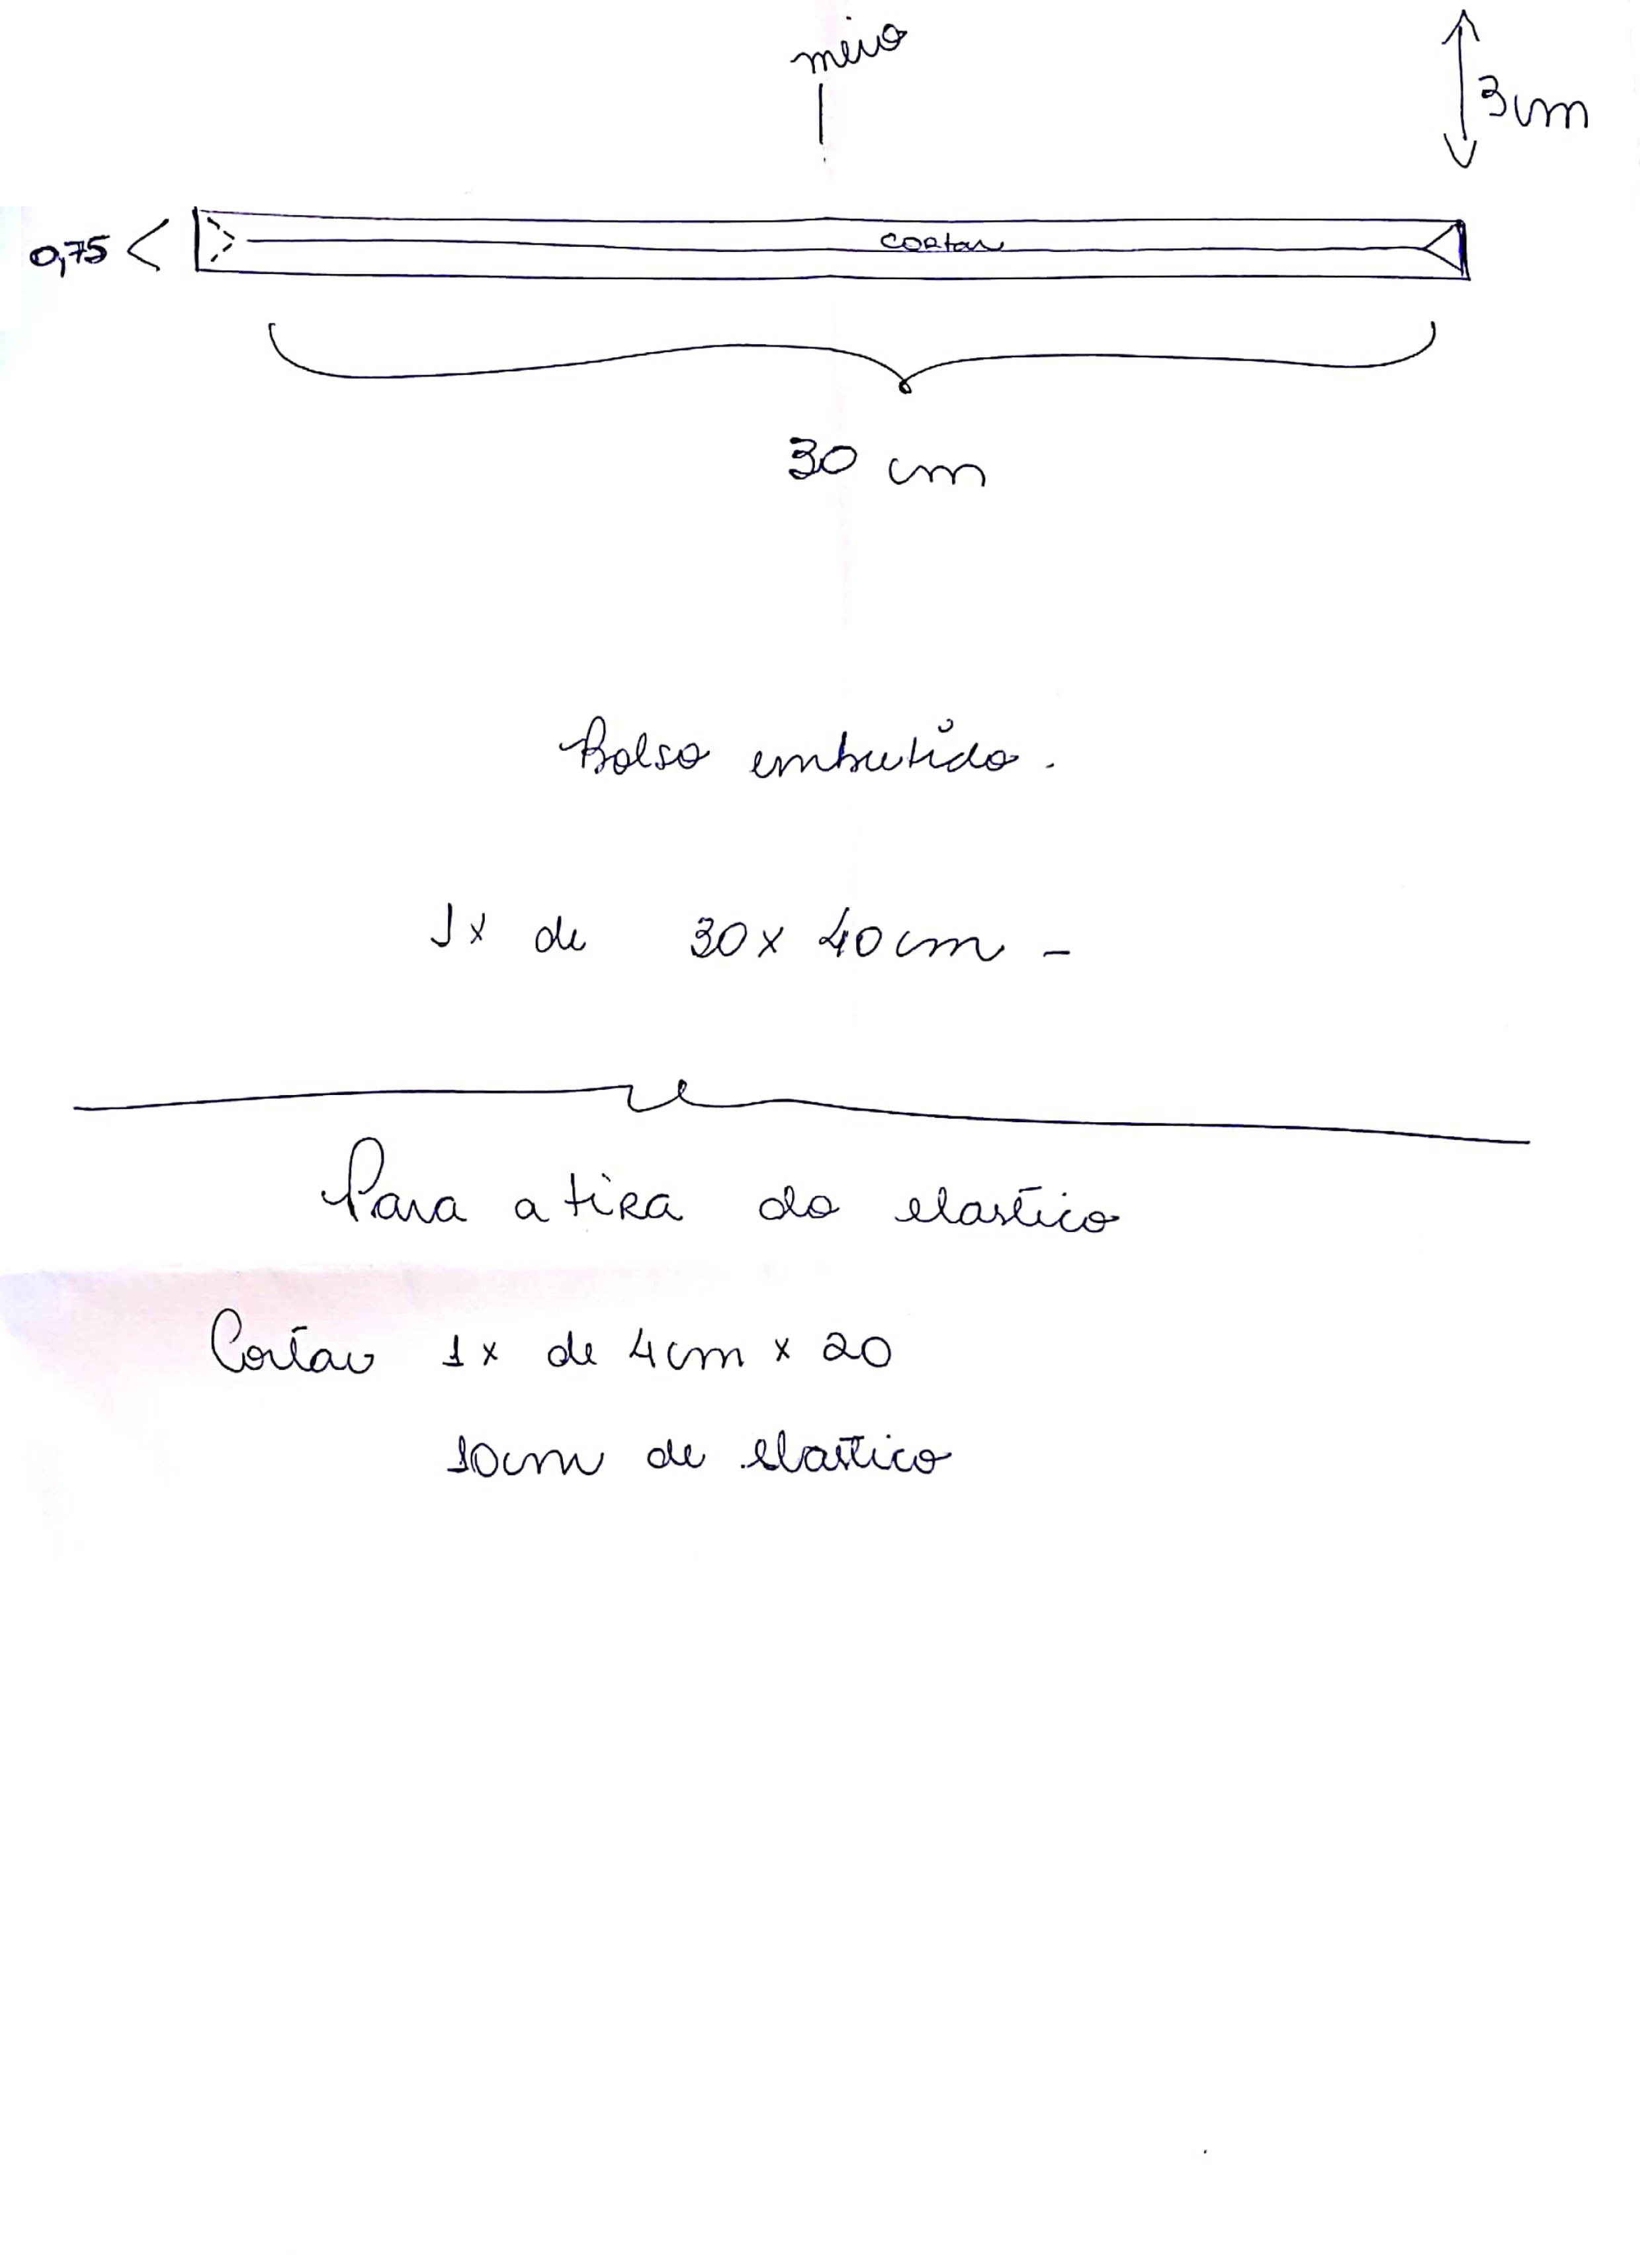 meio
3cm
0,75 <
cortar
30 cm
Bolso embutido.
1x de 30 x 40cm -
Para a tira do elastico
Cortar 1x de 4cm x 20
10cm de elastico